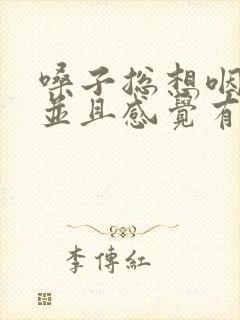 嗓子总想咽
並且感覺有
李傳紅